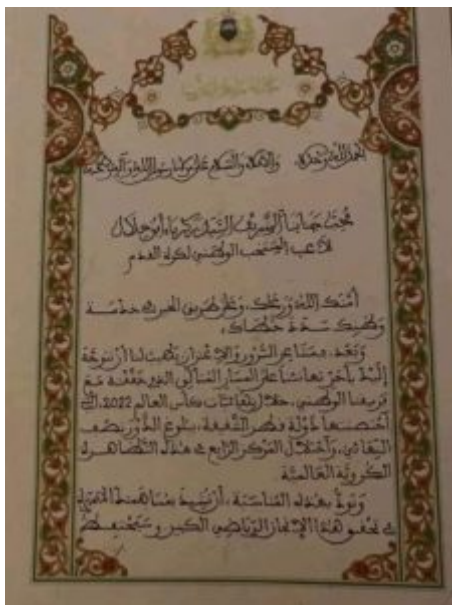 الحمد لله وحده والصلاة والسلام على مولانا رسول الله وآله وصحبه
محب جنابنا الشريف السيد زكرياء أبو خلال
لاعب المنتخب الوطني لكرة القدم
أمنك الله ورعاك، وعلى طريق الخير في خدمة
وطنك سدد خطاك،
وبعد، السرور والاعتزاز يطيب لنا أن نتوجه
إليك بأحر تهانئنا على المسار المتألق الذي حققته مع
فريقنا الوطني، خلال نهائيات كأس العالم 2022، التي
احتضنتها دولة قطر الشقيقة، ببلوغ الدور نصف
النهائي، واحتلال المركز الرابع في هذه التظاهرة
الكروية العالمية
ونود بهذه المناسبة، أن نشيد بمساهمتك المتميزة
في تحقيق هذا الإنجاز الرياضي الكبير